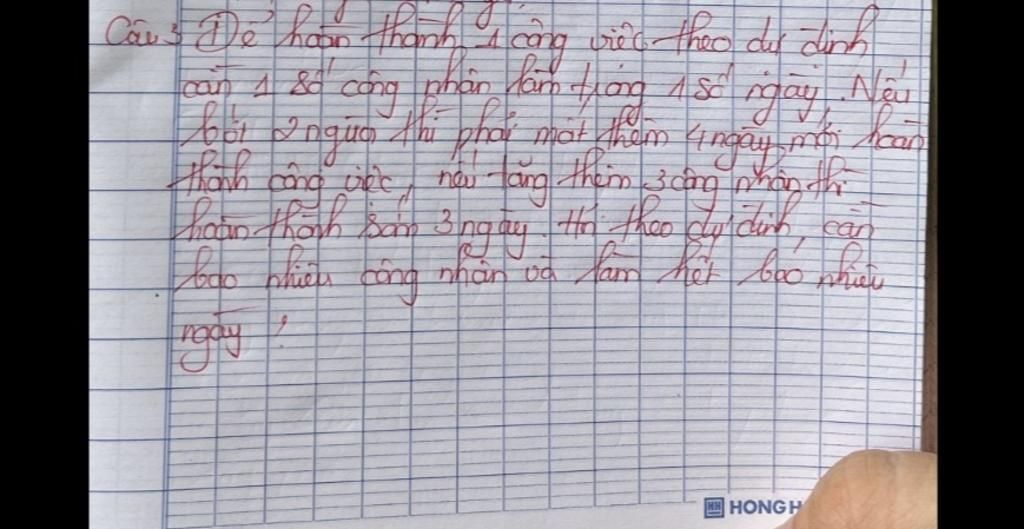 Câu 3 Để hoàn thành 1 công việc theo dự định
cần 1 số công nhân làm trong 1 số ngày. Nếu
bớt 2 người thì phải mất thêm 4 ngày mới hoàn
thành công việc, nếu tăng thêm 3 công nhân thì
hoàn thành sớm 3 ngày. Hỏi theo dự định, cần
bao nhiêu công nhân và làm hết bao nhiêu
ngày ?
HONG H